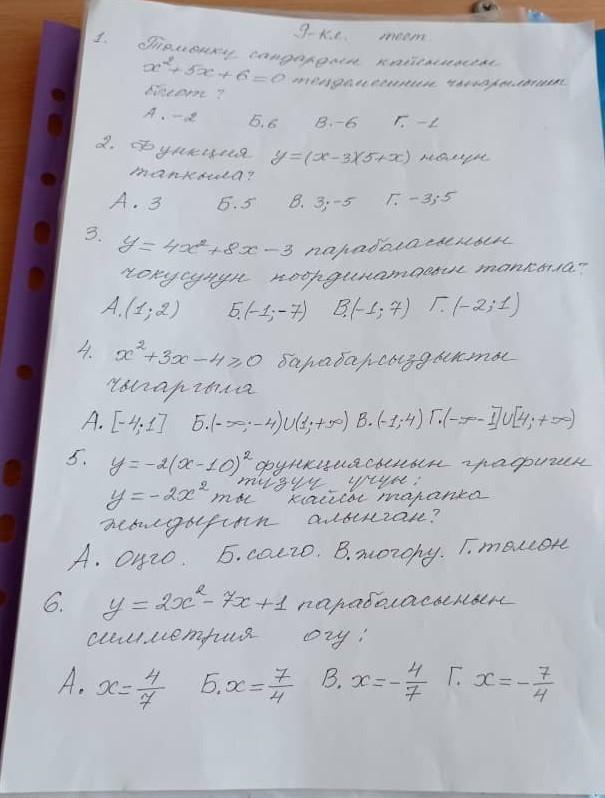 9-кл. тест
1. Төмөнкү сандардын кайсынысы
x²+5x+6=0 теңдемесинин чыгарылышы
болот?
А. -2 Б. 6 В. -6 Г. -1
2. Функция y=(x-3)(5+x) нолун
тапкыла?
А. 3 Б. 5 В. 3; -5 Г. -3; 5
3. y=4x²+8x-3 параболасынын
чокусунун координатасын тапкыла?
А. (1; 2) Б. (-1; -7) В. (-1; 7) Г. (-2; 1)
4. x²+3x-4⩾0 барабарсыздыкты
чыгаргыла
А. [-4; 1] Б. (-∞; -4)∪(1; +∞) В. (-1; 4) Г. (-∞-1]∪[4; +∞)
5. y=-2(x-10)² функциясынын графигин
түзүү үчүн:
y=-2x² ты кайсы тарапка
жылдырып алынган?
А. оңго. Б. солго. В. жогору. Г. төмөн
6. y=2x²-7x+1 параболасынын
симметрия огу:
А. x=4/7 Б. x=7/4 В. x=-4/7 Г. x=-7/4